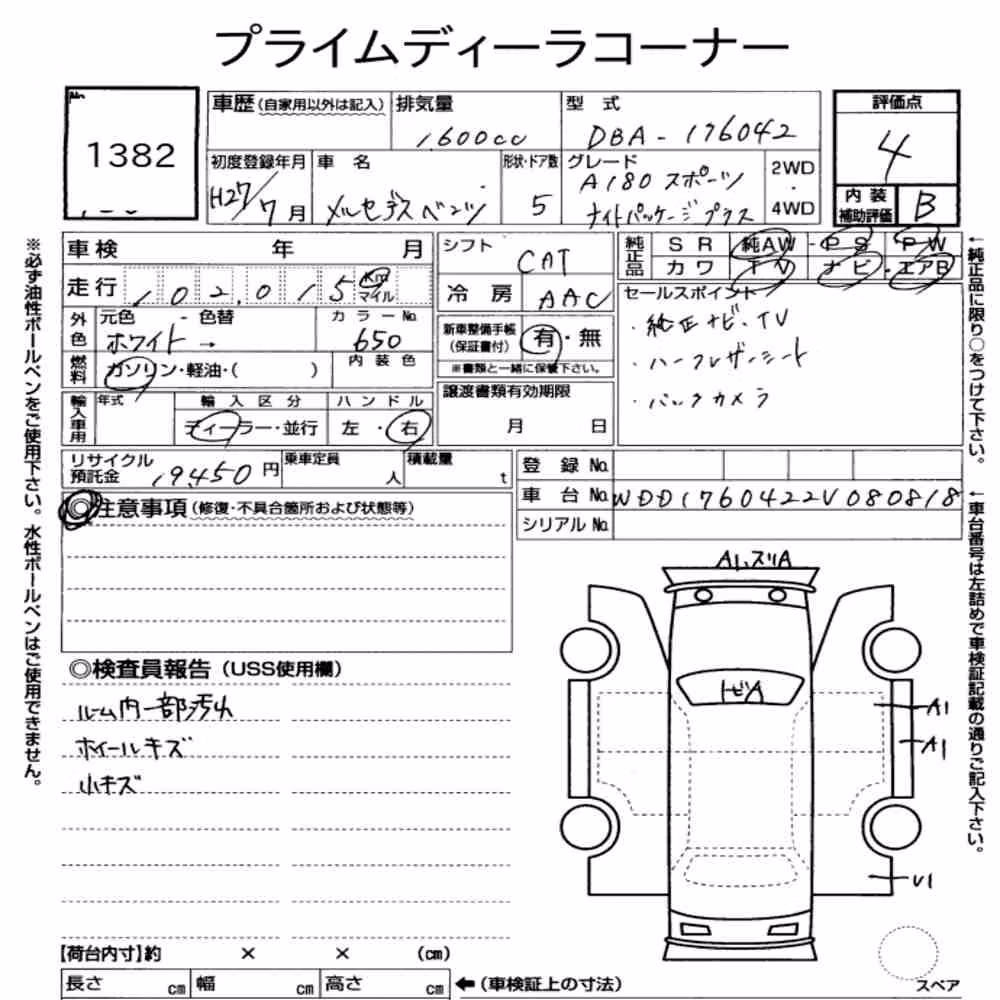 プライムディーラコーナー
No.
1382
車歴(自家用以外は記入)
排気量
1600cc
型式
DBA-176042
評価点
4
初度登録年月
H27/7月
車名
メルセデスベンツ
形状・ドア数
5
グレード
A180 スポーツ
ナイトパッケージプラス
2WD
・
4WD
内装
補助評価
B
車検 年 月
シフト
CAT
純正品
SR 純AW・PS PW
カワ TV ナビ・エアB
走行 102,015 Km
マイル
冷房 AAC
セールスポイント
・純正ナビ・TV
・ハーフレザーシート
・バックカメラ
外色
元色 - 色替
ホワイト→
カラーNo.
650
新車整備手帳
(保証書付)
有・無
※書類と一緒に保管下さい。
燃料
ガソリン・軽油・( )
内装色
輸入車用
年式
輸入区分
ディーラー・並行
ハンドル
左・右
譲渡書類有効期限
月 日
リサイクル
預託金
19,450円
乗車定員
人
積載量
t
登録No.
車台No. WDD1760422V080818
シリアルNo.
◎注意事項(修復・不具合箇所および状態等)
◎検査員報告(USS使用欄)
ルーム内一部汚れ
ホイールキズ
小キズ
A1、スリA
トビA
A1
A1
U1
スペア
【荷台内寸】約 × × (cm)
長さ cm 幅 cm 高さ cm
←(車検証上の寸法)
※必ず油性ボールペンをご使用下さい。水性ボールペンはご使用できません。
←純正品に限り○をつけて下さい。
←車台番号は左詰めで車検証記載の通りご記入下さい。